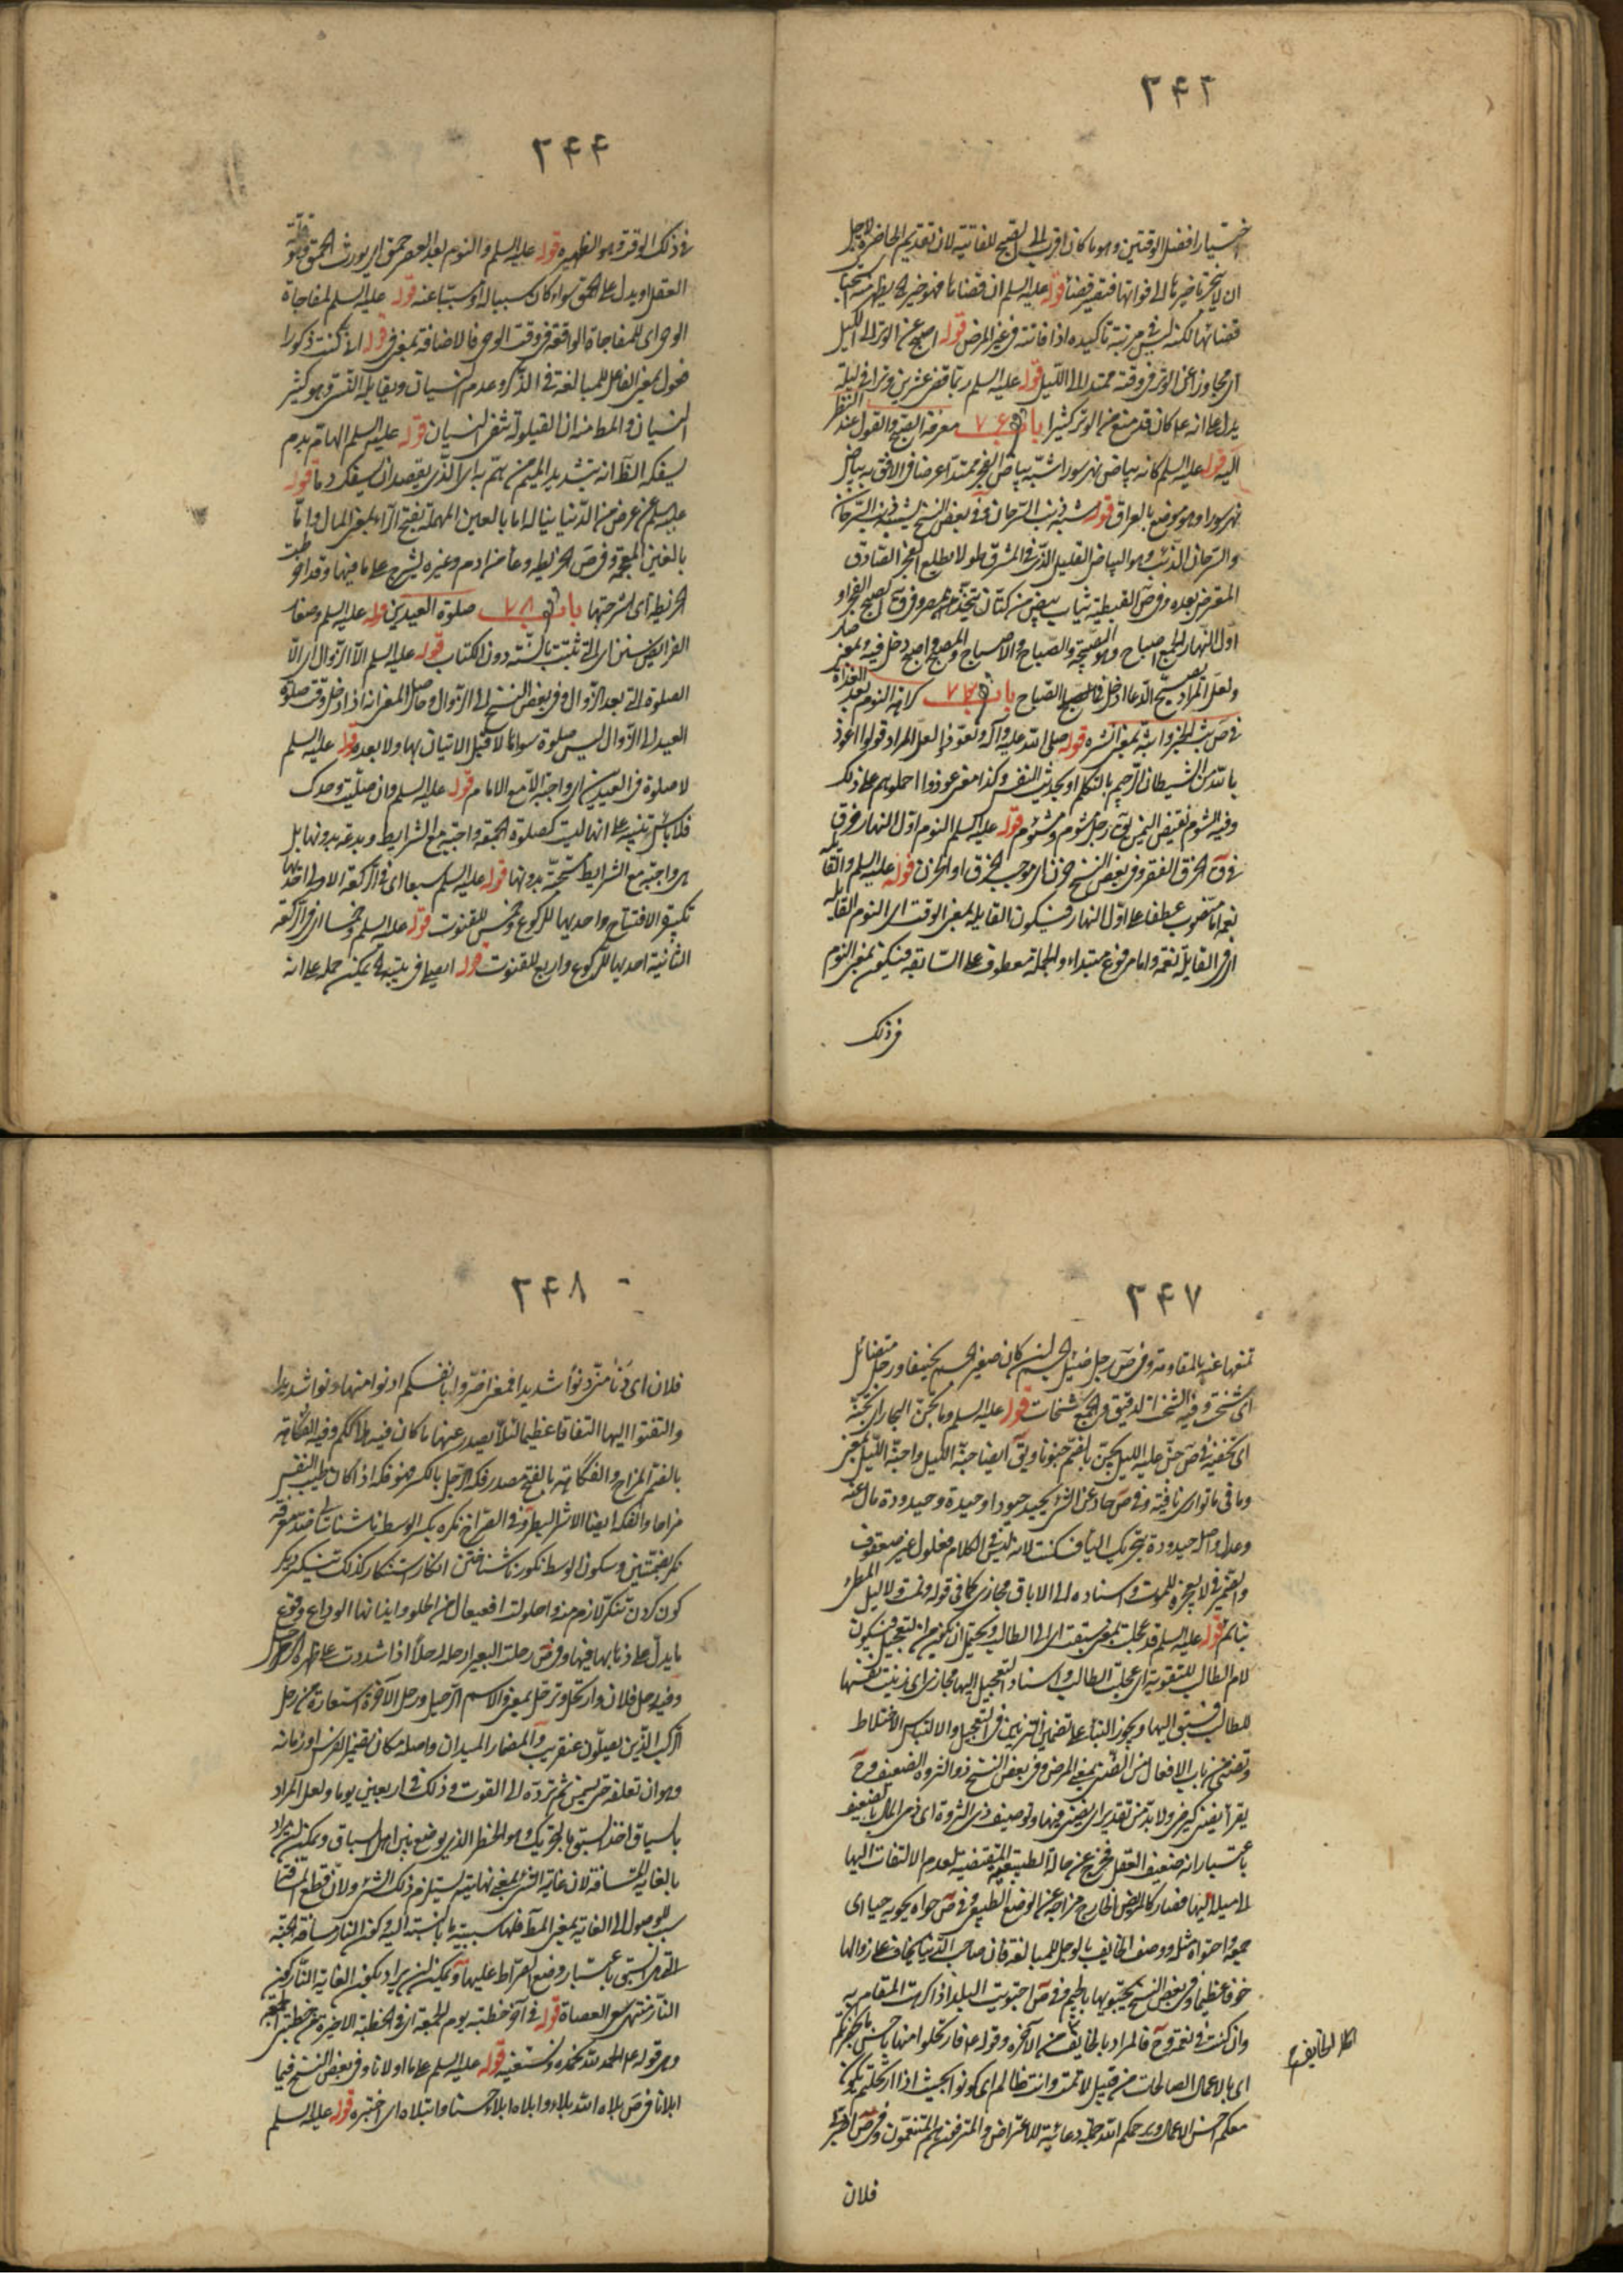 ٢٤٢
اختيار افضل الوقتين وهو ما كان اقرب الى الصبح للفائتة لان تقديم الحاضرة لاجل
ان لا ينجر تأخيرها الى فواتها فتصير قضاء قوله عليه السلم ان قضاها فهو خير له يظهر منه استحباب
قضائها لكنه ليس في مرتبة تأكيده اذا فاتته في غير المرض قوله اصبح عن الوتر الى الليل
اى مجاوزا عن الوتر في وقته ممتدا الى الليل قوله عليه السلم ربما قضى عشرين وترا في ليلة
يدل على انه كان قد منع من الوتر كثيرا باب ٧٦ معرفة الصبح والقول عند النظر
اليه قوله عليه السلم كانه بياض نهر سورا شبّه بياض الفجر ممتدا عرضا في الافق به بياض
نهر سورا وهو موضع بالعراق قوله شبه ذنب السرحان وفي بعض النسخ يشبه ذنب السرحان
والسرحان الذئب وهو البياض القليل الذي في المشرق طولا يطلع الفجر الصادق
المتعرض بعده وفي ص القبطية ثياب بيض من كتان يتخذ بمصر وفي ق الصبح الفجر او
اوّل النهار الجمع اصباح وهو الصبيحة والصباح والاصباح والمصبح واصبح دخل فيه وبمعنى صار
ولعل المراد بصبح الدعا ادخل في الصباح باب ٧٧ كراهة النوم بعد الغداة
في ص بث الخبر وابثه بمعنى نشره قوله صلى الله عليه وآله وتعوذوا لعل المراد قولوا اعوذ
بالله من الشيطان الرجيم بالتكلم او بحديث النفس وكذا معنى عوذوا احملوهم على ذلك
وفيه الشوم نقيض اليمن يق رجل شوم ومشوم قوله عليه السلم النوم اوّل النهار خرق
في ق الخرق الفقر وفي بعض النسخ حزن اى موجب الخرق او الحزن قوله عليه السلم والقايلة
نعمة اما منصوب عطفا على اوّل النهار فيكون القايلة بمعنى الوقت اى النوم القايلة
اى في القايلة نعمة واما مرفوع مبتداء والجملة معطوف على السابقة فيكون بمعنى النوم
في ذلك
٢٤٤
في ذلك الوقت وهو الظهيرة قوله عليه السلم والنوم بعد العصر حمق اى يورث الحمق وقلة
العقل او يدل على الحمق سواء كان سببا له او مسببا عنه قوله عليه السلم لمفاجاة
الوحى اى للمفاجاة الواقعة في وقت الوحى فالاضافة بمعنى في قوله انى كنت ذكورا
فعول بمعنى الفاعل للمبالغة في الذكر وعدم النسيان ويقابله النسى وهو كثير
النسيان والمط منه ان القيلولة تنفى النسيان قوله عليه السلم الهام بدم
يسفكه الظ انه بتشديد الميم من همّ به اى الذي يقصد ان يسفك دما قوله
عليه السلم عن عرض من الدنيا يناله اما بالعين المهملة بفتح الراء بمعنى المال واما
بالغين المعجمة وفي ص الخريطة وعاء من ادم وغيره يشرج على ما فيها وقد اخرطت
الخريطة اى اشرجتها باب ٧٨ صلوة العيدين قوله عليه السلم وصغار
الفرايض سنن اى التي ثبتت بالسنة دون الكتاب قوله عليه السلم الا الزوال اى الا
الصلوة التي بعد الزوال وفي بعض النسخ الى الزوال وحاصل المعنى انه اذا دخل وقت صلوة
العيد الى الزوال ليس صلوة سواها لا قبل الاتيان بها ولا بعده قوله عليه السلم
لا صلوة في العيدين اى واجبة الا مع الامام قوله عليه السلم وان صليت وحدك
فلا باس تنبيه على انها ليست كصلوة الجمعة واجبة مع الشرايط وبدعة بدونها بل
هى واجبة مع الشرايط مستحبة بدونها قوله عليه السلم سبعا اى في الركعة الاولى احديها
تكبيرة الافتتاح واحديها للركوع وخمس للقنوت قوله عليه السلم وخمسا اى في الركعة
الثانية احديها للركوع واربع للقنوت قوله ايصلى في بيته يمكن حمله على انه
٢٤٧
تمنعها عنه بالمقاومة وفي ص رجل ضئيل الجسم اذا كان صغير الجسم نحيفا ورجل متضائل
اى شخت وفيه الشخت الدقيق والجمع شخات قوله عليه السلم وما تجنّ البحار اى تجنّه
اى تخفيه في ص جنّ عليه الليل يجنّ بالضم جنونا ويق ايضا جنّه الليل واجنّه الليل بمعنى
وما في ما توارى نافية وفي ص حاد عن الشئ يحيد حيودا وحيدة وحيدودة مال عنه
وعدل واصل حيدودة بتحريك الياء فسكنت لانه ليس في الكلام فعلول غير صعفوق
والضمير في لا يعجزه للموت واسناده الى الاباق مجازى كما في قوله ونمت وما ليل المطى
بنائم قوله عليه السلم قد عجلت بمعنى سبقت اى الى الطالب ويحتمل ان يكون من التعجيل فيكون
لام الطالب للتقوية اى عجلت الطالب واسناد التعجيل اليها مجازى اى زينت نفسها
للطالب فسبق اليها ويجوز البناء على تضمين التزيين في التعجيل والالتباس الاختلاط
وتضنى من باب الافعال من الضنى بمعنى المرض وفي بعض النسخ ذو الثروة الضعيف وح
يقرأ يضنى كيرضى ولا بد من تقدير اى يضنى فيها وتوصيف ذى الثروة اى ذى المال بالضعيف
باعتبار انه ضعيف العقل فخرج عن حالة الطبيعة المقتضية لعدم الالتفات اليها
الى الميل اليها فصار كالمريض الخارج مزاجه عن الوضع الطبيعى وفي ص حواه يحويه حيا اى
جمعه واحتواه مثله ووصف الخايف بالوجل للمبالغة فان صاحب الدنيا يخاف على زوالها
خوفا عظيما وفي بعض النسخ يجتويها بالجيم وفي ص اجتويت البلد اذا كرهت المقام به
وان كنت في نعمة وح فالمراد بالخايف من الآخرة وقوله ع فارتحلوا منها باحسن ما بحضرتكم
اى بالاعمال الصالحات من قبيل لا تمت وانت ظالم اى كونوا بحيث اذا ارتحلتم يكون
معكم احسن الاعمال ويرحمكم الله جملة دعائية للاعتراض والمترفون هم المتنعمون وفي ص
فلان
٢٤٨
فلان اى دنا منه دنوّا شديدا فمعنى اضرّوا بانفسكم ادنوا منها دنوا شديدا
والتفتوا اليها التفاتا عظيما لئلا يصدر عنها ما كان فيه هلاككم وفيه الفكاهة
بالضم المزاح والفكاهة بالفتح مصدر فكه الرجل بالكسر فهو فكه اذا كان طيب النفس
مزاحا والفكه ايضا الاشر البطر وفي الصراح نكره بكسر الوسط ناشناسائى ضد معرفة
نكر بضمتين وسكون الوسط نكور ناشناختن انكار استنكار كذلك تنكير ديگر
گون كردن تنكر لازم منه واحلولت افعيعال من الحلو وايذانها الوداع وقوع
ما يدل على ذهابها فيها وفي ص رحلت البعير ارحله رحلا اذا شددت على ظهره الرحل
وفيه رحل فلان وارتحل وترحل بمعنى والاسم الرحيل ورحل الآخرة استعارة من رحل
الركب الذين يصلون عنقريب والمضمار الميدان واصله مكان تضمير الفرس او زمانه
وهو ان تعلفه حتى يسمن ثم تردّه الى القوت وذلك في اربعين يوما ولعل المراد
بالسباق اخذ السبق بالتحريك وهو الخطر الذي يوضع بين اهل السباق ويمكن ان يراد
بالغاية المسافة لان غاية الشئ بمعنى نهايته يستلزم ذلك الشئ ولان قطع المسافة
سبب للوصول الى الغاية بمعنى المط فلها سببية ما بالنسبة اليه وكون النار مسافة الجنة
القصوى السبق باعتبار وضع الصراط عليها ويمكن ان يراد بكون الغاية النار كون
النار منتهى سعى العصاة قوله في آخر خطبة يوم الجمعة اى في الخطبة الاخيرة من خطبتى الجمعة
وهى قوله ع الحمد لله نحمده ونستعينه قوله عليه السلم على ما اولانا وفي بعض النسخ فيما
ابلانا في ص بلاه الله بلاء وابلاه ابلاء حسنا وابتلاه اى اختبره قوله عليه السلم